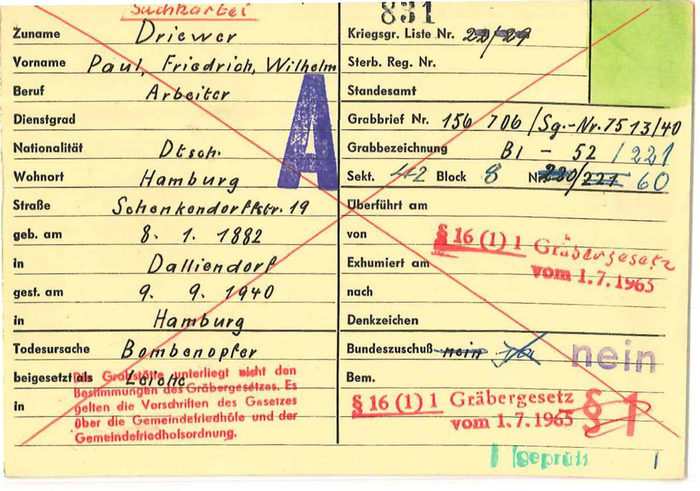 Suchkartei
831
Zuname Driewer
Vorname Paul, Friedrich, Wilhelm
Beruf Arbeiter
Dienstgrad
Nationalität Dtsch.
Wohnort Hamburg
Straße Schenkendorffstr. 19
geb. am 8. 1. 1882
in Dalliendorf
gest. am 9. 9. 1940
in Hamburg
Todesursache Bombenopfer
beigesetzt als Leiche
in
A
Die Grabstätte unterliegt nicht den
Bestimmungen des Gräbergesetzes. Es
gelten die Vorschriften des Gesetzes
über die Gemeindefriedhöfe und der
Gemeindefriedhofsordnung.
Kriegsgr. Liste Nr.
Sterb. Reg. Nr.
Standesamt
Grabbrief Nr. 156 706 / Sg.-Nr. 7513/40
Grabbezeichnung B1 - 52 / 221
Sekt. 42 Block 8 Nr. 230/221 60
Überführt am
von
§ 16 (1) 1 Gräbergesetz
vom 1.7.1965
Exhumiert am
nach
Denkzeichen
Bundeszuschuß nein Ja nein
Bem.
§ 16 (1) 1 Gräbergesetz
vom 1.7.1965
§ 1
geprüft